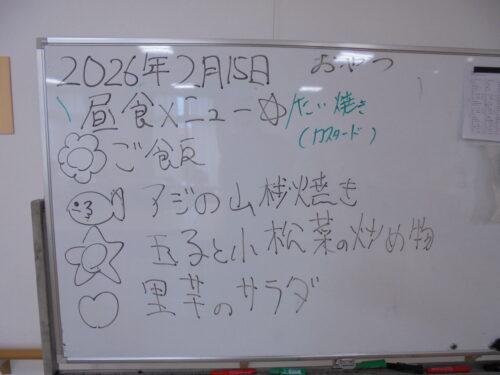 2026年2月15日
おやつ
昼食メニュー☆
たい焼き
(カスタード)
ご飯
アジの山椒焼き
玉子と小松菜の炒め物
里芋のサラダ